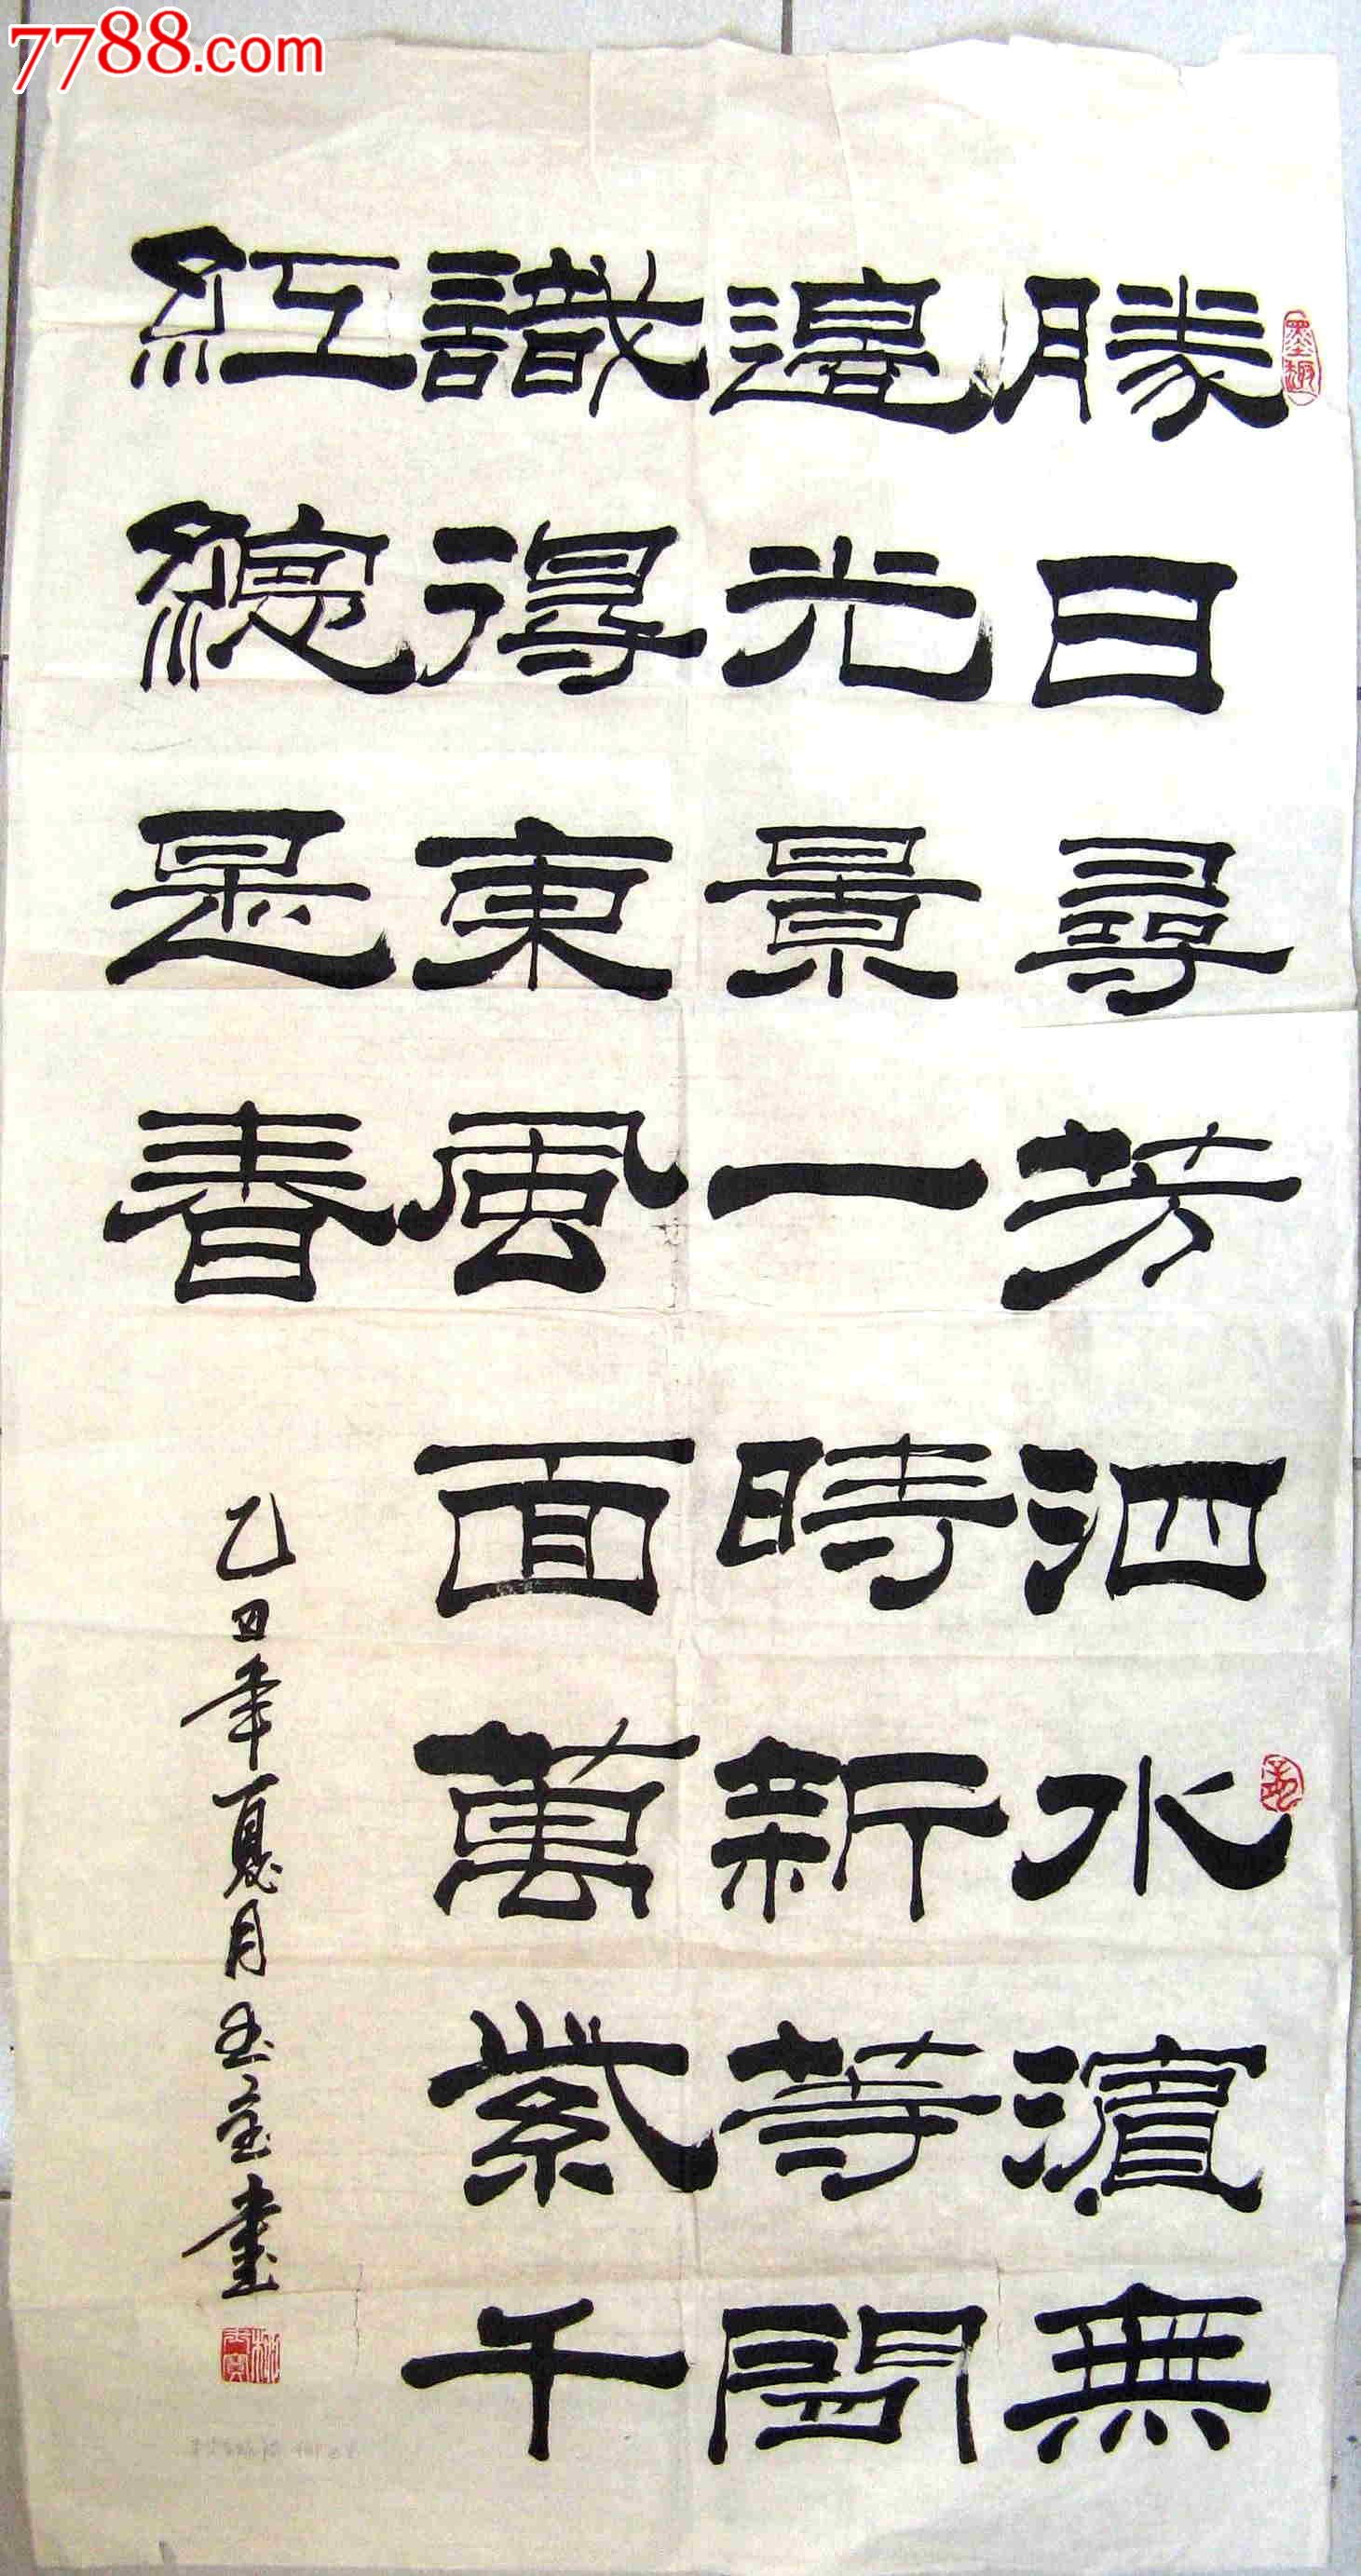 7788.com
勝日尋芳泗水濱無
邊光景一時新等閒
識得東風面萬紫千
紅總是春
乙丑年夏月玉宝書
墨趣